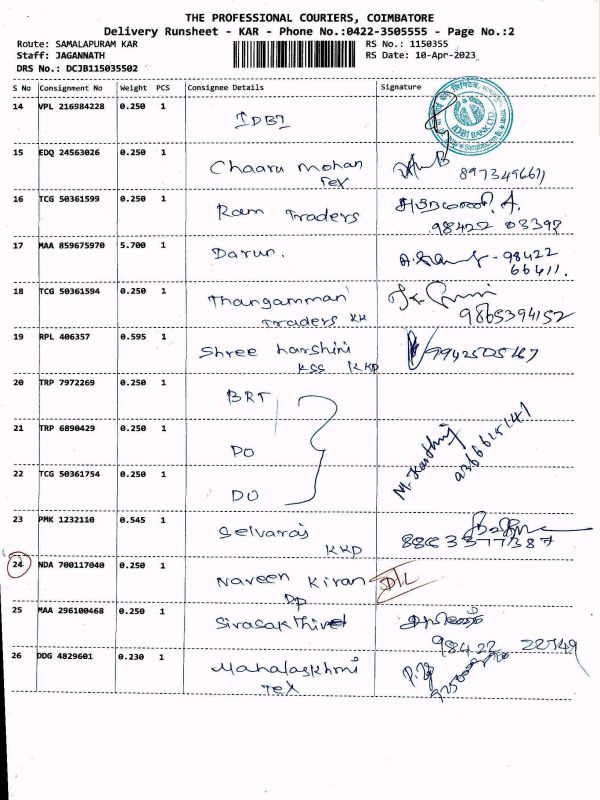 THE PROFESSIONAL COURIERS, COIMBATORE
Delivery Runsheet - KAR - Phone No.:0422-3505555 - Page No.:2
Route: SAMALAPURAM KAR
RS No.: 1150355
Staff: JAGANNATH
RS Date: 10-Apr-2023
DRS No.: DCJB115035502
S No Consignment No Weight PCS Consignee Details Signature
14 VPL 216984228 0.250 1 IDBI
IDBI BANK LTD.
15 EDQ 24563026 0.250 1 Chaaru Mohan
Tex
8973496611
16 TCG 50361599 0.250 1 Ram Traders
98422 03397
17 MAA 859675970 5.700 1 Darun. 98422
66411.
18 TCG 50361594 0.250 1 Thangamman
Traders KK
9865394152
19 RPL 406357 0.595 1 Shree harshini
KSS KKD
9942505167
20 TRP 7972269 0.250 1 BRT
21 TRP 6890429 0.250 1 DO
M. Karthi
22 TCG 50361754 0.250 1 DO
23 PMK 1232110 0.545 1 Selvaraj
KKD
8883377387
24 NDA 700117040 0.250 1 Naveen Kiran D/L
DP
25 MAA 296100468 0.250 1 Sivasakthivel
98422 22749
26 DDG 4829601 0.230 1 Mahalaskhmi
Tex